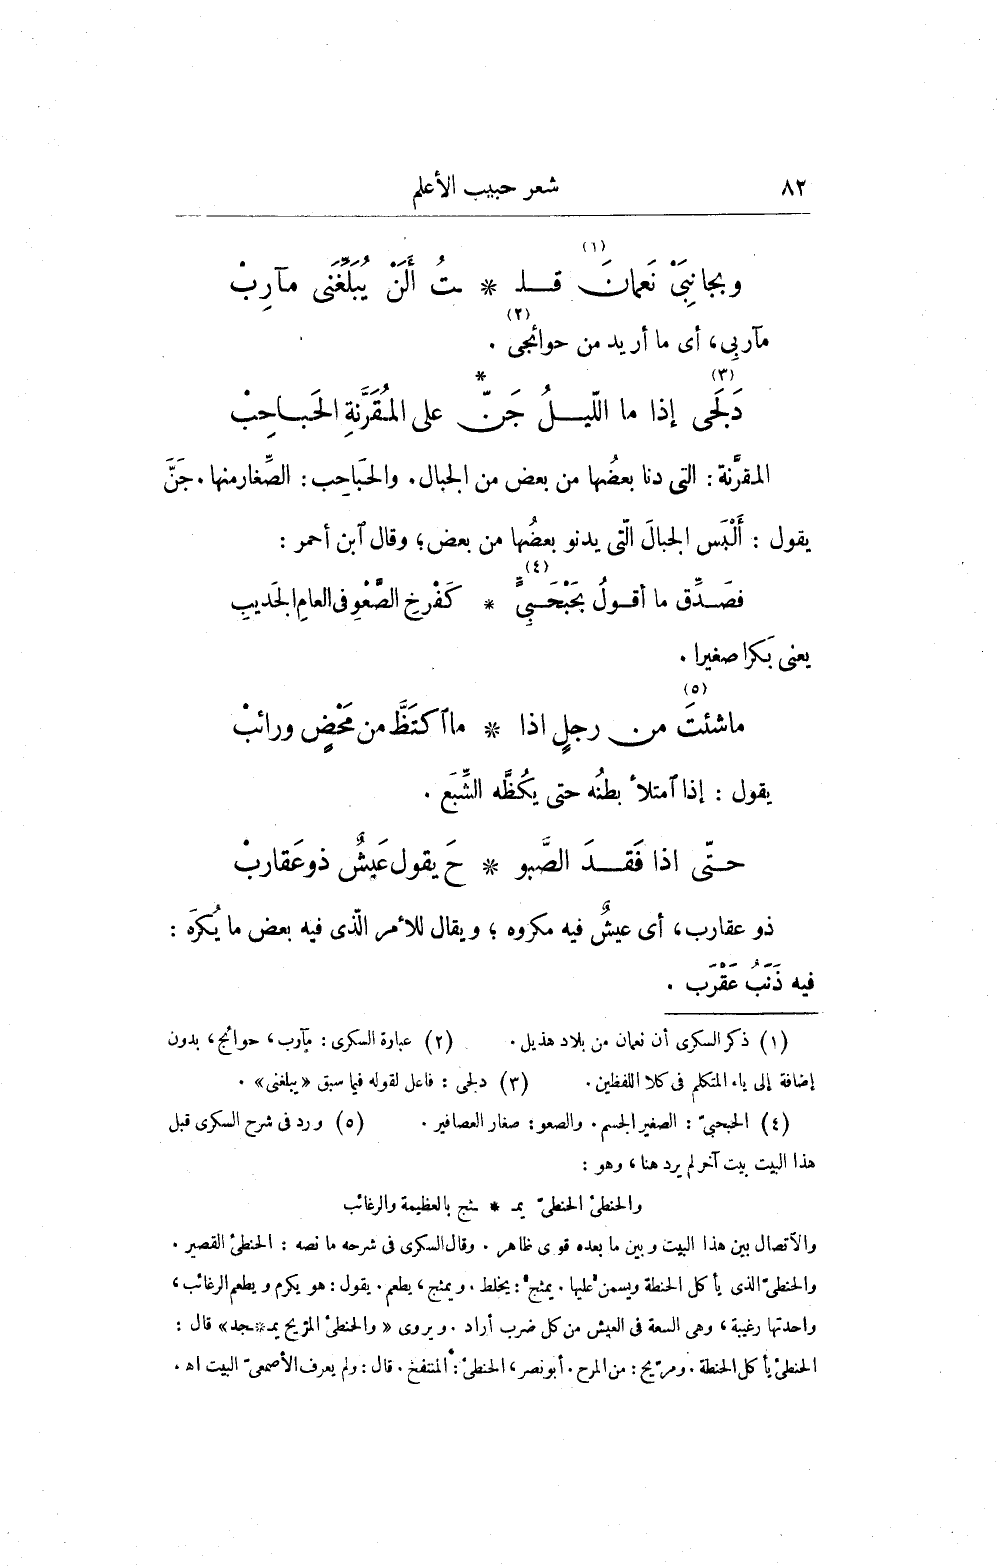 ٨٢ شعر حبيب الأعلم
وبجانِبَىْ نَعمانَ (١) قلـ * ـتُ أَلَنْ يُبَلِّغَنى مآرِبْ
مآربِى، أى ما أريد من حوائجى (٢) .
دَلَجَى (٣) إذا ما اللّيلُ جَنّ * على المُقَرَّنةِ الحَباحِبْ
المقرَّنة : التى دنا بعضُها من بعض من الجبال. والحَبَاحِب : الصِّغار منها . جَنَّ
يقول : أَلْبَس الجبالَ الّتى يدنو بعضُها من بعض؛ وقال ٱبن أحمر :
فصَدِّق ما أقولُ بحَبْحَبِىٍّ (٤) * كَفَرْخِ الصَّعْوِ فى العامِ الجَديبِ
يعنى بَكرا صغيرا .
ماشئتَ (٥) من رجلٍ اذا * ما ٱكتَظَّ من مَحْضٍ ورائبْ
يقول : إذا ٱمتلأ بطنُه حتى يكُظَّه الشِّبَع .
حتّى اذا فَقَدَ الصَّبو * حَ يقول عَيشٌ ذو عَقاربْ
ذو عقارب، أى عيشٌ فيه مكروه ؛ ويقال للأمر الّذى فيه بعض ما يُكرَه :
فيه ذَنَبُ عَقْرَب .
(١) ذكر السكرى أن نعمان من بلاد هذيل . (٢) عبارة السكرى : مآرب، حوائج، بدون
إضافة إلى ياء المتكلم فى كلا اللفظين . (٣) دلجى : فاعل لقوله فيما سبق «يبلغنى» .
(٤) الحبحبىّ : الصغير الجسم . والصعو : صغار العصافير . (٥) ورد فى شرح السكرى قبل
هذا البيت بيت آخر لم يرد هنا ، وهو :
والحنطئ الحنطىّ يمـ * ـثج بالعظيمة والرغائب
والاتصال بين هذا البيت وبين ما بعده قوى ظاهر . وقال السكرى فى شرحه ما نصه : الحنطئ القصير .
والحنطىّ الذى يأكل الحنطة ويسمن عليها . يمثج : يخلط . ويمثج ، يطعم . يقول : هو يكرم ويطعم الرغائب ،
واحدتها رغيبة ، وهى السعة فى العيش من كل ضرب أراد . ويروى «والحنطئ المرّيح يمـ * ـجد» قال :
الحنطئ يأكل الحنطة . ومرّيح : من المرح . أبو نصر، الحنطئ : المنتفخ . قال : ولم يعرف الأصمعىّ البيت اه .